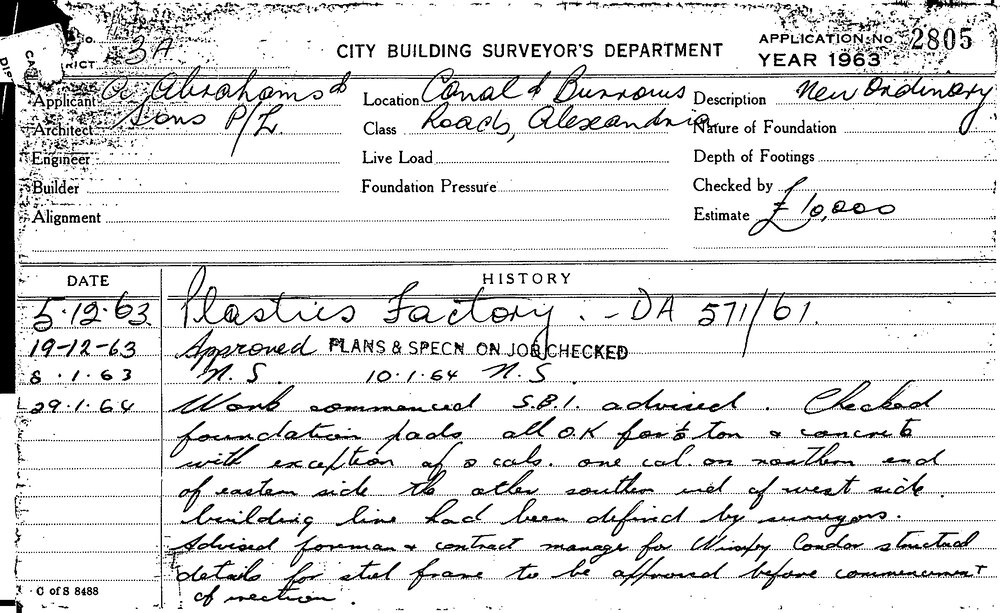 No. 3A
CITY BUILDING SURVEYOR'S DEPARTMENT
APPLICATION No. 2805
YEAR 1963
Applicant A. Abrahams &
Sons P/L.
Architect
Engineer
Builder
Alignment
Location Canal & Burrows
Roads, Alexandria
Class
Live Load
Foundation Pressure
Description New Ordinary
Nature of Foundation
Depth of Footings
Checked by
Estimate £10,000
DATE HISTORY
5.12.63 Plastics Factory. - DA 571/61.
19-12-63 Approved PLANS & SPECN ON JOB CHECKED
8.1.63 N.S. 10.1.64 N.S.
29.1.64 Work commenced S.B.I. advised. Checked
foundation pads all O.K for ton & concrete
with exception of 2 cols. one col. on northern end
of eastern side the other southern end of west side.
building line had been defined by surveyors.
Advised foreman & contract manager for Wimpey Condor structural
details for steel frame to be approved before commencement
of erection.
C of S 8488